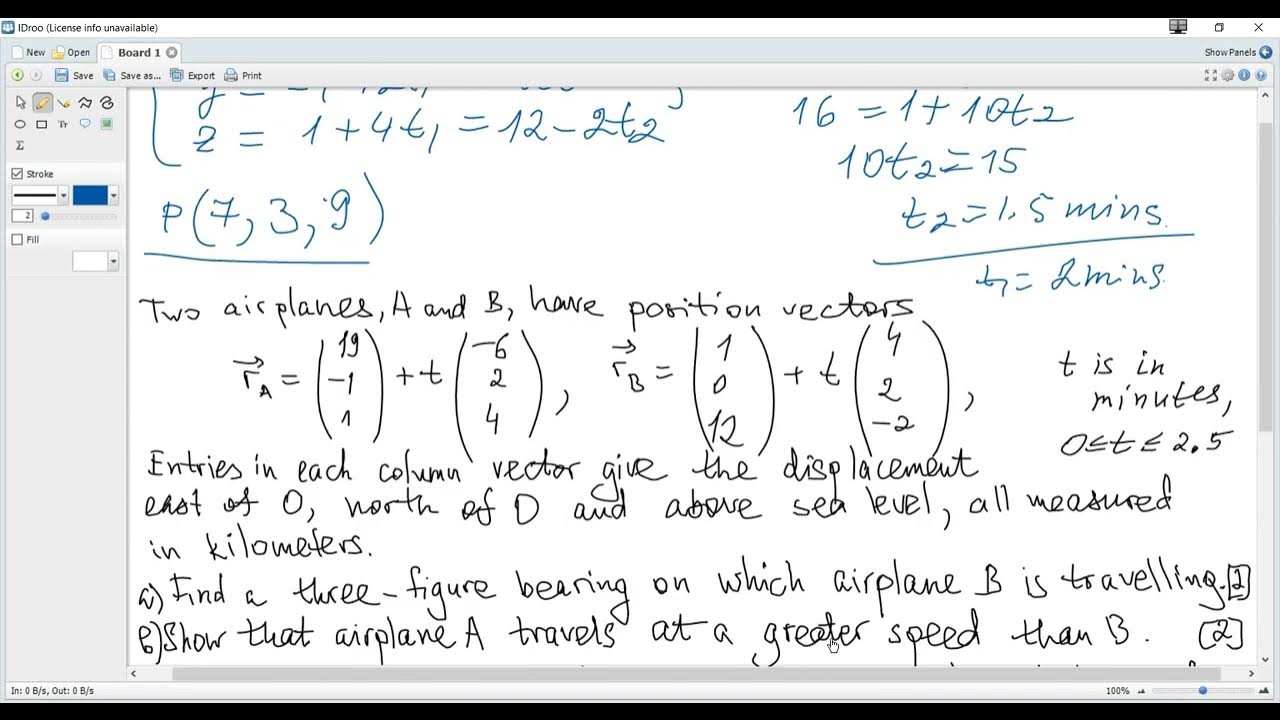 IDroo (License info unavailable)
New Open Board 1 Show Panels
Save Save as... Export Print
z = 1 + 4t₁ = 12 - 2t₂
P(7, 3, 9)
16 = 1 + 10t₂
10t₂ = 15
t₂ = 1.5 mins.
t₁ = 2 mins.
Stroke
2
Fill
Two airplanes, A and B, have position vectors
r⃗_A = (19, -1, 1) + t (-6, 2, 4), r⃗_B = (1, 0, 12) + t (4, 2, -2),
t is in
minutes,
0 ≤ t ≤ 2.5
Entries in each column vector give the displacement
east of O, north of O and above sea level, all measured
in kilometers.
a) Find a three-figure bearing on which airplane B is travelling. [2]
b) Show that airplane A travels at a greater speed than B. [2]
In: 0 B/s, Out: 0 B/s 100%